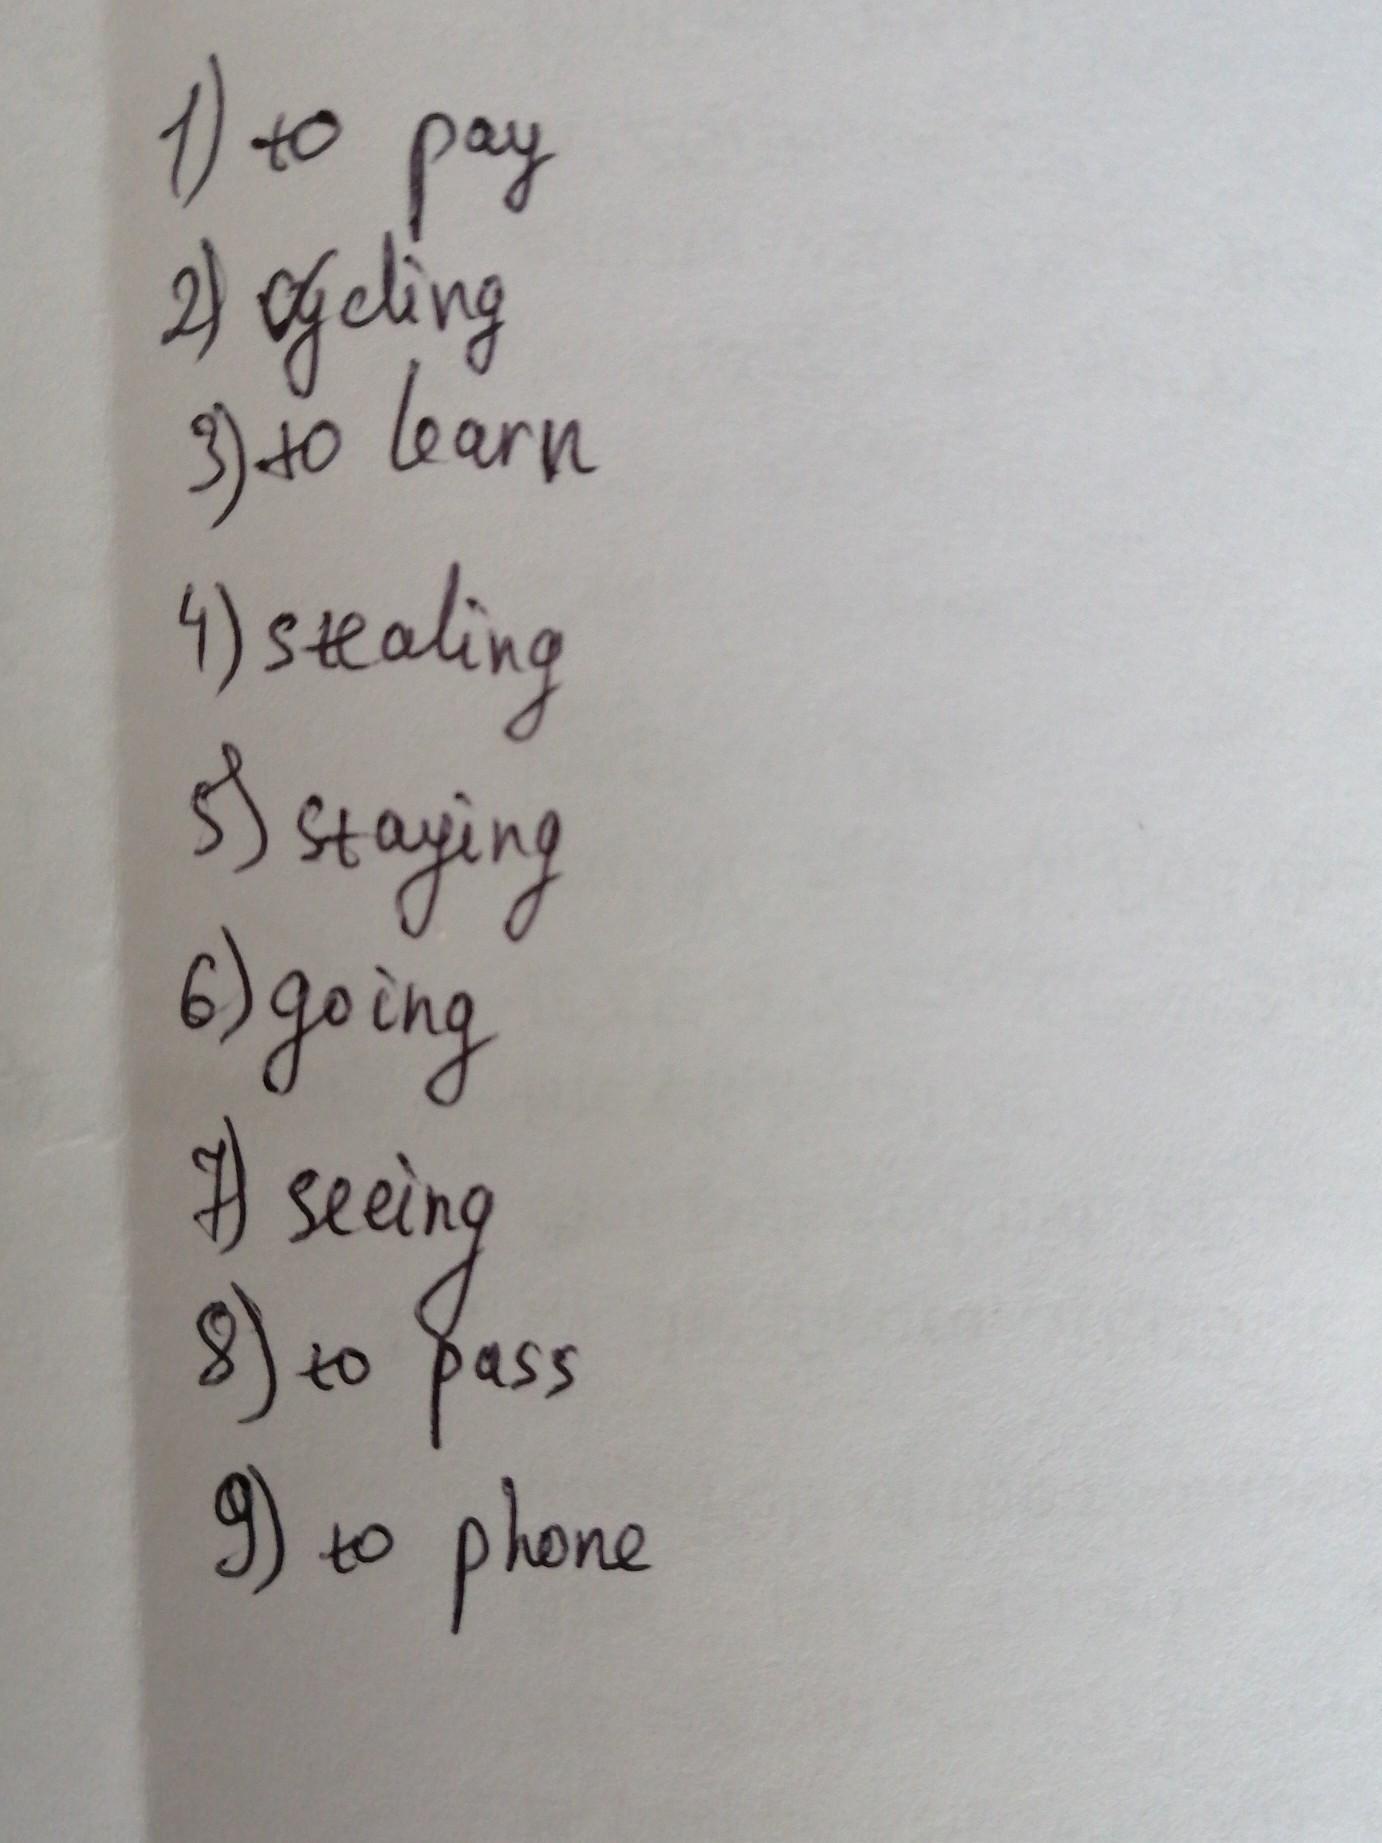 1) to pay
2) cycling
3) to learn
4) stealing
5) staying
6) going
7) seeing
8) to pass
9) to phone